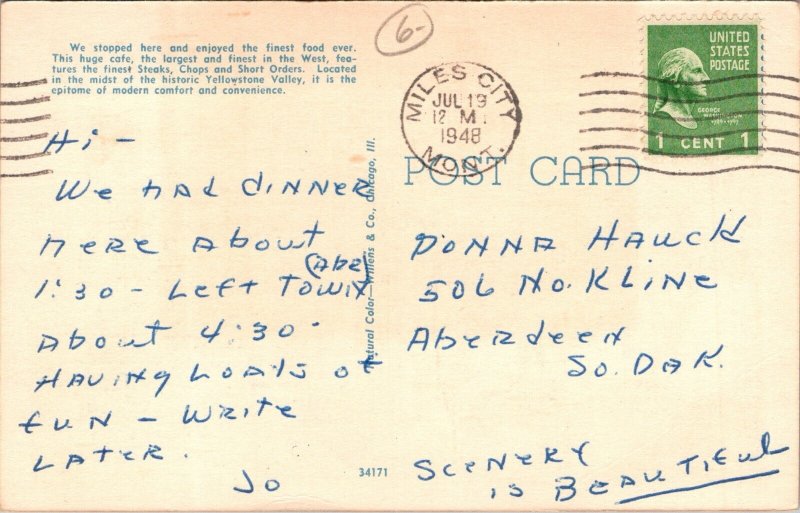 We stopped here and enjoyed the finest food ever.
This huge cafe, the largest and finest in the West, fea-
tures the finest Steaks, Chops and Short Orders. Located
in the midst of the historic Yellowstone Valley, it is the
epitome of modern comfort and convenience.
6-
MILES CITY
JUL 19
12 M
1948
MONT.
UNITED
STATES
POSTAGE
GEORGE
WASHINGTON
1789-1797
1 CENT 1
POST CARD
Hi -
We had dinner
here about
1:30 - Left Town (Abe)
about 4:30.
Having loads of
fun - write
later.
Jo
Natural Color—Willens & Co., Chicago, Ill.
34171
Donna Hauck
506 No. Kline
Aberdeen
So. Dak.
Scenery
is Beautiful